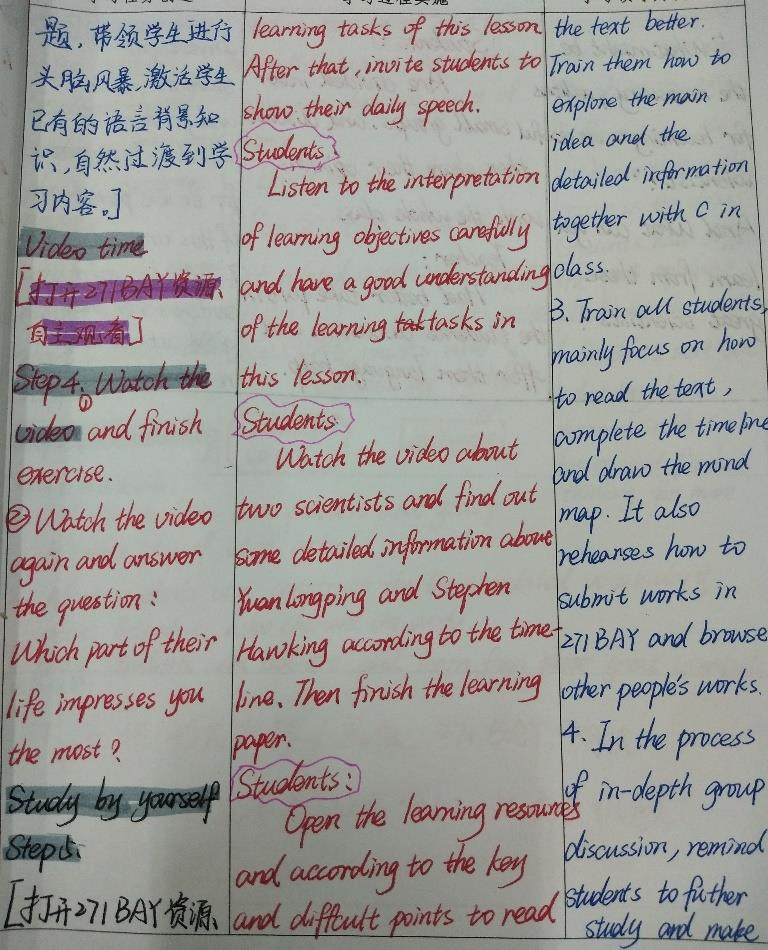 题，带领学生进行
头脑风暴，激活学生
已有的语言背景知
识，自然过渡到学
习内容。]
Video time
[打开271BAY资源、
自主观看]
Step4. Watch the
①
video and finish
exercise.
② Watch the video
again and answer
the question:
Which part of their
life impresses you
the most?
Study by yourself
Step5.
[打开271BAY资源、
learning tasks of this lesson.
After that, invite students to
show their daily speech.
Students
Listen to the interpretation
of learning objectives carefully
and have a good understanding
of the learning tak tasks in
this lesson.
Students.
Watch the video about
two scientists and find out
some detailed information about
Yuan Longping and Stephen
Hawking according to the time-
line. Then finish the learning
paper.
Students:
Open the learning resources
and according to the key
and difftcult points to read
the text better.
Train them how to
explore the main
idea and the
detailed information
together with C in
class.
3. Train all students,
mainly focus on how
to read the text,
complete the timeline
and draw the mind
map. It also
rehearses how to
submit works in
271BAY and browse
other people's works.
4. In the process
of in-depth group
discussion, remind
students to futher
study and make